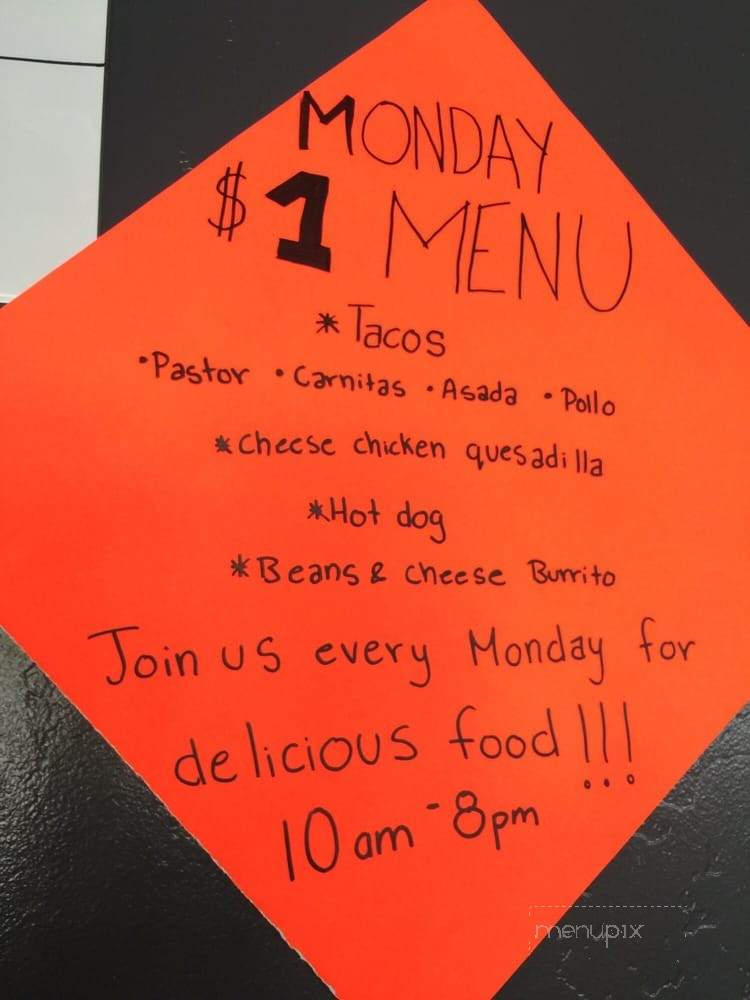 MONDAY
$1 MENU
* Tacos
• Pastor • Carnitas • Asada • Pollo
* Cheese chicken quesadilla
* Hot dog
* Beans & cheese Burrito
Join us every Monday for
delicious food!!!
10am - 8pm
menupix